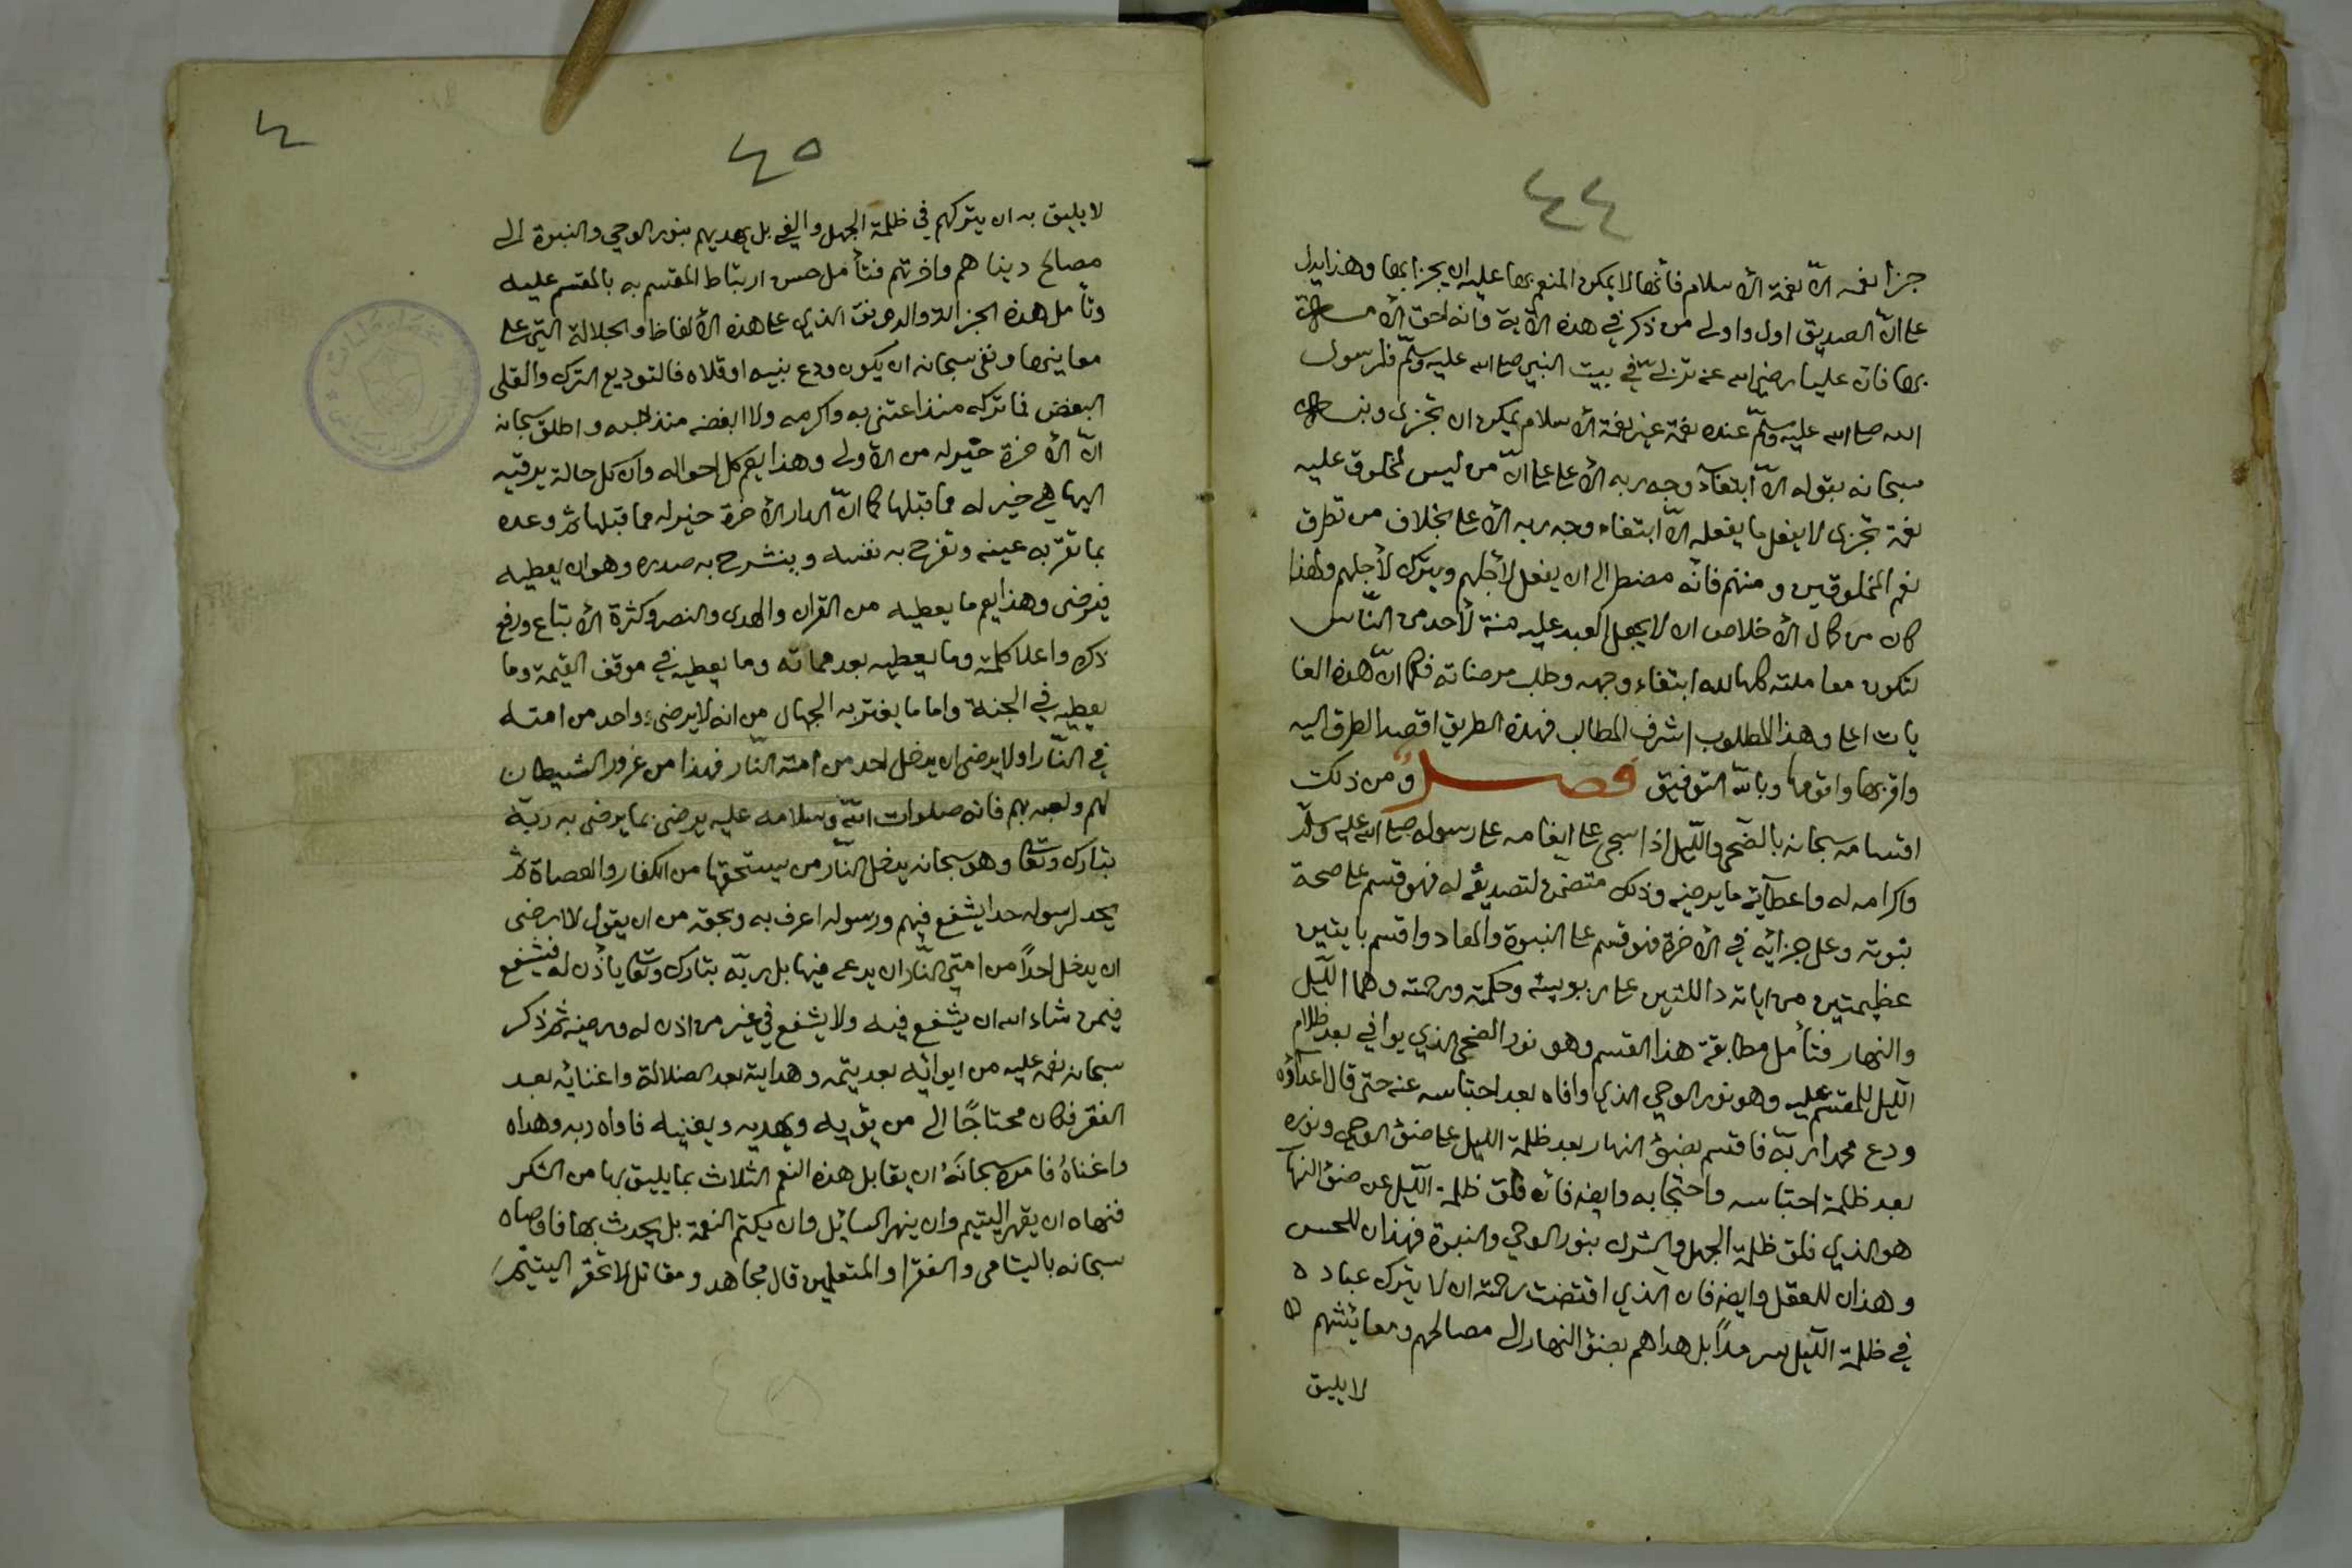 ٤٤
جزا نعمه الّا نعمة الأسلام فأنها لا يمكن المنعم بها عليه ان يجزا بها وهذا يدل
على انّ الصديق اول واولى من ذكر في هذه الآية وانه احق الأمة
بها فان عليا رضي الله عنه تربى في بيت النبي صلى الله عليه وسلّم فلرسول
الله صلى الله عليه وسلّم عنده نعمة غير نعمة الأسلام يمكن ان تجزى ونبه
سبحانه بقوله الّا ابتغاء وجه ربه الأعلى على انّ من ليس لمخلوق عليه
نعمة تجزى لا يفعل ما يفعله الّا ابتغاء وجه ربه الأعلى بخلاف من تطوق
نعم المخلوقين ومننهم فأنه مضطر الى ان يفعل لأجلهم ويترك لأجلهم ولهذا
كان من كمال الأخلاص ان لا يجعل العبد عليه منة لأحد من النّاس
لتكون معاملته كلها لله ابتغاء وجهه وطلب مرضاته فكما انّ هذه الغا
يات اعلى وهذا المطلوب اشرف المطالب فهذه الطريق اقصد الطرق اليه
واقربها واقومها وبالله التوفيق فصل ومن ذلك
اقسامه سبحانه بالضّحى والّليل اذا سجى على انعامه على رسوله صلى الله عليه وسلّم
واكرامه له واعطآئه ما يرضيه وذلك متضمن لتصديقه له فهو قسم على صحة
نبوته وعلى جزائه في الأخرة فهو قسم على النبوة والمعاد واقسم بايتين
عظيمتين من اياته دالتين على ربوبيته وحكمته ورحمته وهما الّليل
والنهار فتأمل مطابقة هذا القسم وهو نور الضحى الذي يوافي بعد ظلام
الّليل للمقسم عليه وهو نور الوحي الذي وافاه بعد احتباسه عنه حتى قال اعداؤه
ودع محمدا ربّه فاقسم بضؤ النهار بعد ظلمة الليل على ضؤ الوحي ونوره
بعد ظلمة احتباسه واحتجابه وايضه فان فلق ظلمة الّليل عن ضؤ النهار
هو الذي فلق ظلمة الجهل والشرك بنور الوحي والنبوة فهذان للحس
وهذان للعقل وايضه فان الّذي اقتضت رحمته ان لا يترك عباده
في ظلمة الّليل سرمداً بل هداهم بضؤ النهار الى مصالحهم ومعائشهم
لا يليق
٤٥
لا يليق به ان يتركهم في ظلمة الجهل والغي بل يهديهم بنور الوحي والنبوة الى
مصالح دنياهم واخرتهم فتأمل حسن ارتباط المقسم به بالمقسم عليه
وتأمل هذه الجزالة والرونق الذي على هذه الألفاظ والجلالة التي على
معانيها ونفى سبحانه ان يكون ودع نبيه او قلاه فالتوديع الترك والقلى
البغض فما تركه منذ اعتنى به واكرمه ولا ابغضه منذ احبه واطلق سبحانه
انّ الأخرة خير له من الأولى وهذا يعم كل احواله وان كل حالة يرقيه
اليها هي خير له مما قبلها كما انّ الدار الأخرة خير له مما قبلها ثم وعده
بما تقر به عينه وتفرح به نفسه وينشرح به صدره وهو ان يعطيه
فيرضى وهذا يعم ما يعطيه من القرآن والهدى والنصر وكثرة الأتباع ورفع
ذكره واعلا كلمته وما يعطيه بعد مماته وما يعطيه في موقف القيمة وما
يعطيه في الجنة واما ما يغتر به الجهال من انه لا يرضى واحد من امته
في النّار او لا يرضى ان يدخل احد من امته النّار فهذا من غرور الشيطان
لهم ولعبه بهم فانه صلوات الله وسلامه عليه يرضى بما يرضى به ربّه
تبارك وتعا وهو سبحانه يدخل النّار من يستحقها من الكفار والعصاة ثم
يحد لرسوله حدا يشفع فيهم ورسوله اعرف به وبحقه من ان يقول لا ارضى
ان يدخل احداً من امتي النّار ان يدعى فيها بل ربّه تبارك وتعا يأذن له فيشفع
فيمن شاء الله ان يشفع فيه ولا يشفع في غير من اذن له ورضيه ثم ذكر
سبحانه نعمه عليه من ايوائه بعد يتمه وهدايته بعد الضلالة واغنائه بعد
الفقر فكان محتاجًا الى من يؤيه ويهديه ويغنيه فاواه ربه وهداه
واغناهُ فامره سبحانَهُ ان يقابل هذه النعم الثلاث بما يليق بها من الشكر
فنهاه ان يقهر اليتيم وان ينهر السائل وان يكتم النعمة بل يحدث بها فاوصاه
سبحانه باليتامى والفقرا والمتعلمين قال مجاهد ومقاتل لا تحقر اليتيم
٤٥